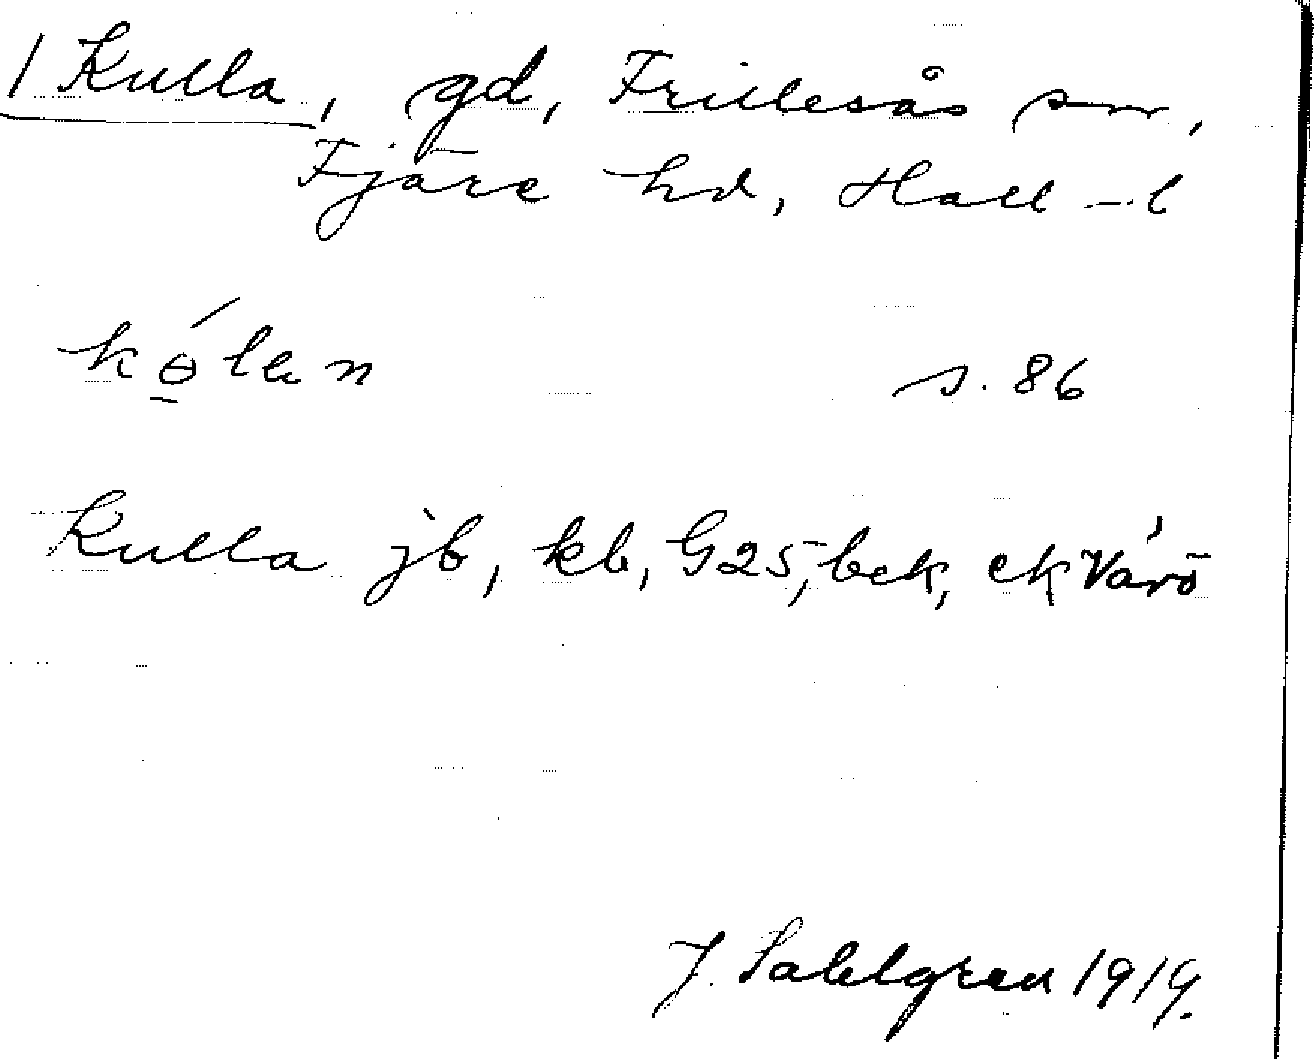 1 Kulla, gd, Frillesås sn,
Fjäre hd, Hall-l
s. 86
Kulla jb, kb, G25, bck, ek Värö
J. Sahlgren 1919.